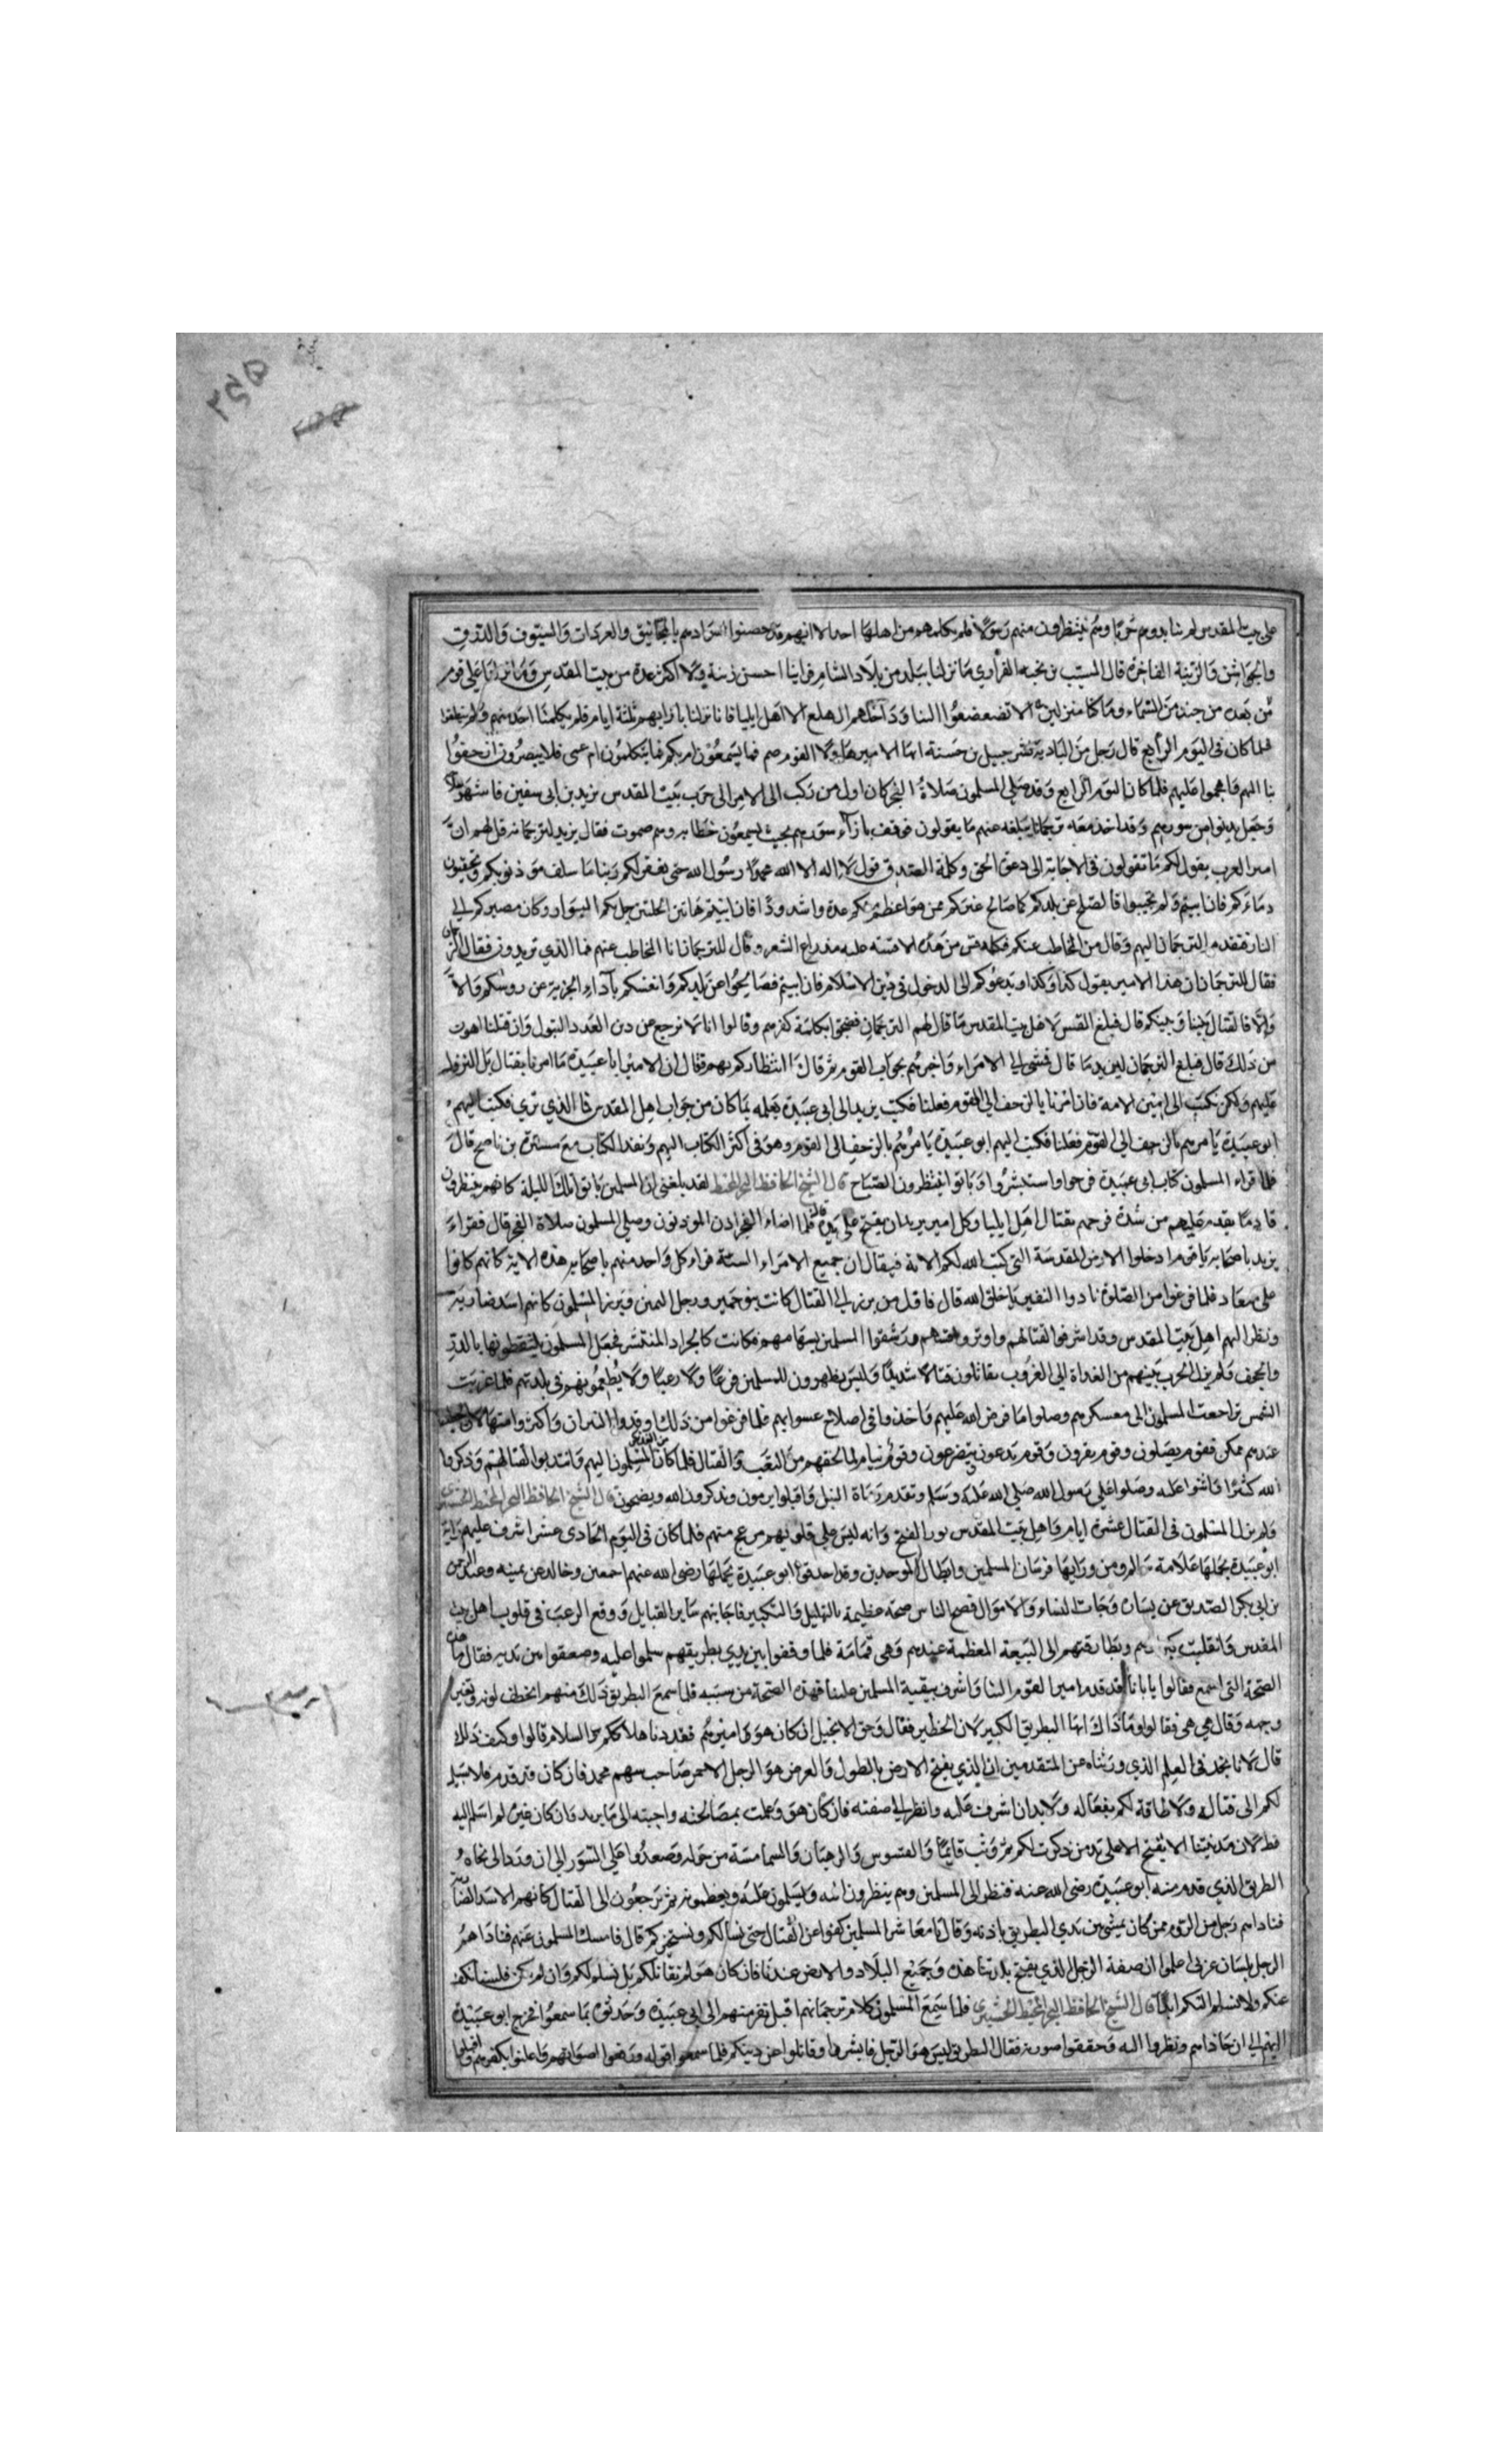 ۲۵۵
على بيت المقدس لم نبارزوهم حربا وهم ينتظرون منهم رسولا فلم يكلمهم من اهلها احد الا انهم قد حصنوا اسوارهم بالمجانيق والعرادات والسيوف والدرق
والجواشن والزينة الفاخرة قال المسيب بن نجبه الفزاري ما نزلنا ببلد من بلاد الشام فراينا احسن زينة ولا اكثر عدة من بيت المقدس وما نزلنا على قوم
الا تضعضعوا لنا وداخلهم الهلع الا اهل ايليا فانا نزلنا بازايهم ثلثة ايام فلم يكلمنا احد منهم ولم ينطقوا
فلما كان في اليوم الرابع قال رجل من البادية لشرجبيل بن حسنة ايها الامير هاولا القوم صم فما يسمعون ام بكم فما يتكلمون ام عمى فلا يبصرون ازحفوا
بنا اليهم فلما كان اليوم الرابع وقد صلى المسلمون صلاة الفجر كان اول من ركب الى الامر الى حرب بيت المقدس يزيد بن ابى سفين فاشهر سلاحه
وجعل يدنوا من سورهم وقد اخذ معه ترجمانا يبلغه عنهم ما يقولون فوقف بازآء سورهم بحيث يسمعون خطابه وهم صموت فقال يزيد لترجمانه قل لهم ان
امير العرب يقول لكم ما تقولون في الاجابة الى دعوة الحق وكلمة الصدق قول لا اله الا الله محمد رسول الله حتى يغفر لكم ربنا ما سلف من ذنوبكم وتحقنون
دماءكم فان ابيتم ولم تجيبوا فالصلح عن بلدكم كما صالح غيركم ممن هو اعظم منكم عدة واشد وذا فان ابيتم هاتين الحلتين حل بكم البوار وكان مصيركم الى
النار فتقدم الترجمان اليهم وقال من المخاطب عنكم فكلمه قس من هذه الاقسة عليه مدراع الشعر وقال للترجمان انا المخاطب عنهم فما الذي تريدون فقال الترجمان
فقال الترجمان ان هذا الامير يقول كذا وكذا ويدعوكم الى الدخول في دين الاسلام فان ابيتم فصالحوا عن بلدكم وانفسكم بآداء الجزية عن روسكم والا
والا فالقتال بيننا وبينكم قال فبلغ القس لاهل بيت المقدس ما قال لهم الترجمان فضجوا بكلمة كفرهم وقالوا انا لا نرجع عن دين العدد البتول وان قتلنا اهون
من ذلك قال فبلغ الترجمان ليزيد ما قال فمشى الى الامراء واخبرهم بجواب القوم ثم قال ما انتظاركم بهم فقال ان الامير ابا عبيدة ما امرنا بقتال بل النزول
عليهم ولكن نكتب الى امين الامة فان امرنا بالزحف الى القوم فعلنا فكتب يزيد الى ابى عبيدة يعلمه بما كان من جواب اهل المقدس فما الذي ترى فكتب اليهم
ابو عبيدة يامرهم بالزحف الى القوم فعلنا فكتب اليهم ابو عبيدة يامرهم بالزحف الى القوم وهو في اكثر الكتاب اليهم ونفذ الكتاب مع مسيرة بن ناصح قال
فلما قراء المسلمون كتاب ابى عبيدة فرحوا واستبشروا وباتوا ينتظرون الصباح قال الشيخ الحافظ البحر المحيط لقد بلغنى ان المسلمين باتوا تلك الليلة كانهم ينتظرون
قادما يقدم عليهم من شدة فرحهم بقتال اهل ايليا وكل امير يريد ان يفتح على يديه قال فلما اضاء الفجر اذن الموذنون وصلى المسلمون صلاة الفجر قال فقراء
يزيد باصحابه يا قوم ادخلوا الارض المقدسة التى كتب الله لكم الاية فيقال ان جميع الامراء الستة قراء كل واحد منهم باصحابه هذه الاية كانهم كانوا
على ميعاد فلما فرغوا من الصلوة نادوا النفير يا خلق الله قال فاول من برز الى القتال كانت بنو حمير ورجل اليمن وبرز المسلمون كانهم اسد ضارية
ونظر اليهم اهل بيت المقدس وقد اشرفوا لقتالهم واوتروا ورشقوا المسلمين بسهامهم فكانت كالجراد المنتشر فجعل المسلمون يلتقطونها بالدرق
والحجف ولم يزل الحرب بينهم من الغداة الى الغروب يقاتلون قتالا شديدا وليس يظهرون للمسلمين فزعا ولا رعبا ولا يطمعونهم في بلدتهم فلما غربت
الشمس تراجعت المسلمون الى معسكرهم وصلوا ما فرض الله عليهم واخذوا في اصلاح فلما فرغوا من ذلك اوقدوا النيران واكثروا
عندهم ممكن فقوم يصلون وقوم يقرون وقوم يدعون ويتضرعون وقوم نيام لما لحقهم من التعب والقتال فلما كان من الغد المسلمون اليهم وانتدبوا لقتالهم وذكروا
الله كثيرا واثنوا عليه وصلوا على رسول الله صلى الله عليه وسلم وتقدم رماة النبل واقبلوا يرمون ويذكرون الله ويضجون قال الشيخ الحافظ البحر المحيط
ولم يزل المسلمون في القتال عشرة ايام واهل بيت المقدس الفرح وانه ليس على قلوبهم منهم فلما كان في اليوم الحادى عشر اشرف عليهم راية
ابو عبيدة يحملها غلامه سالم ومن ورايها فرسان المسلمين وابطال الموحدين وقد احدقوا بابو عبيدة رضى الله عنهم اجمعين وخالد عن يمينه وعبد الرحمن
بن ابى بكر الصديق عن يساره وجات النساء والاموال فضج الناس ضجة عظيمة بالتهليل والتكبير فاجابتهم ساير القبايل ووقع الرعب في قلوب اهل بيت
المقدس وانقلبت كبراوهم وبطارقتهم الى البيعة المعظمة عندهم وهى قمامة فلما وقفوا بين يدى بطريقهم سلموا عليه وصعقوا بين يديه فقال ما هذه
الضجة التى اسمع فقالوا يا بابانا قد قدم امير القوم الينا واشرف ببقية المسلمين علينا فهذه الضجة من سببه فلما سمع البطريق ذلك منهم انخطف لونه وتغير
وجهه وقال هى هى فقالوا وما ذاك ايها البطريق الكبير لان الخطير فقال وحق الانجيل ان كان هو اميرهم فقد دنا هلاككم والسلام قالوا وكيف ذلك
قال لانا نجد في العلم الذي ورثناه عن المتقدمين ان الذي يفتح الارض بالطول والعرض هو الرجل الاحمر صاحب محمد فان كان قد قدم فلا سبيل
لكم الى قتاله ولا طاقة لكم بفعاله ولا بد ان اشرف عليه وانظر الى صفته فان كان هو وعلمت بمصالحته واجبته الى ما يريد وان كان غيره لم اسلم اليه
قط لان مدينتنا لا يفتح الا على يد من ذكرت لكم ثم وثب قايما والقسوس والرهبان والشمامسة من حوله وصعدوا على السور الى ان ورد الى تجاه
الطريق الذي قدم منه ابو عبيدة رضى الله عنه فنظر الى المسلمين وهم ينظرون اليه ويسلمون عليه ويعظمونه ثم يرجعون الى القتال كانهم الاسد الضارية
فناداهم رجل من الروم ممن كان يمشى بين يدي البطريق باذنه وقال يا معاشر المسلمين كفوا عن القتال حتى نسالكم ونستخبركم قال فامسك المسلمون عنهم فناداهم
الرجل بلسان عربى اعلموا ان صفة الرجل الذي يفتح بلدتنا هذه وجميع البلاد والارض عندنا فان كان هو لم نقاتلكم بل نسلم لكم وان لم يكن فلسنا نكف
عنكم ولا نسلم اليكم ابدا قال الشيخ الحافظ البحر المحيط فلما سمع المسلمون كلام ترجمانهم اقبل نفر منهم الى ابى عبيدة وحدثوه بما سمعوا فخرج ابو عبيدة
اليهم الى ان حاذاهم ونظروا اليه وحققوا صورته فقال البطريق ليس هو الرجل فابشروا وقاتلوا عن دينكم فلما سمعوا قوله رفعوا اصواتهم واعلنوا بكفرهم واقبلوا